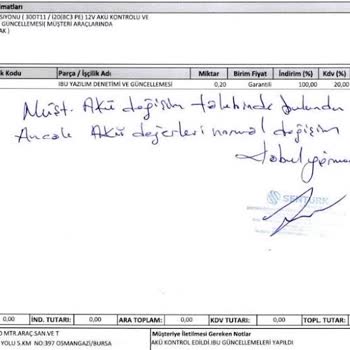 imatları
SİYONU ( 300T11 / I20(BC3 PE) 12V AKÜ KONTROLÜ VE
GÜNCELLEMESİ( MÜŞTERİ ARAÇLARINDA
AK )
k Kodu Parça / İşçilik Adı Miktar Birim Fiyat İndirim (%) Kdv (%)
IBU YAZILIM DENETİMİ VE GÜNCELLEMESİ 0,20 Garantili 100,00 20,00
Müşt. Akü değişim talebinde bulundu
Ancak Akü değerleri normal değişim
kabul görme
SENTÜRK
0,00 İND. TUTARI: 0,00 ARA TOPLAM: 0,00 KDV TUTARI: 0,00 TOPL. TUTAR:
O MTR.ARAÇ SAN.VE T Müşteriye İletilmesi Gereken Notlar
YOLU 5.KM NO:397 OSMANGAZİ/BURSA AKÜ KONTROL EDİLDİ.IBU GÜNCELLEMELERİ YAPILDI